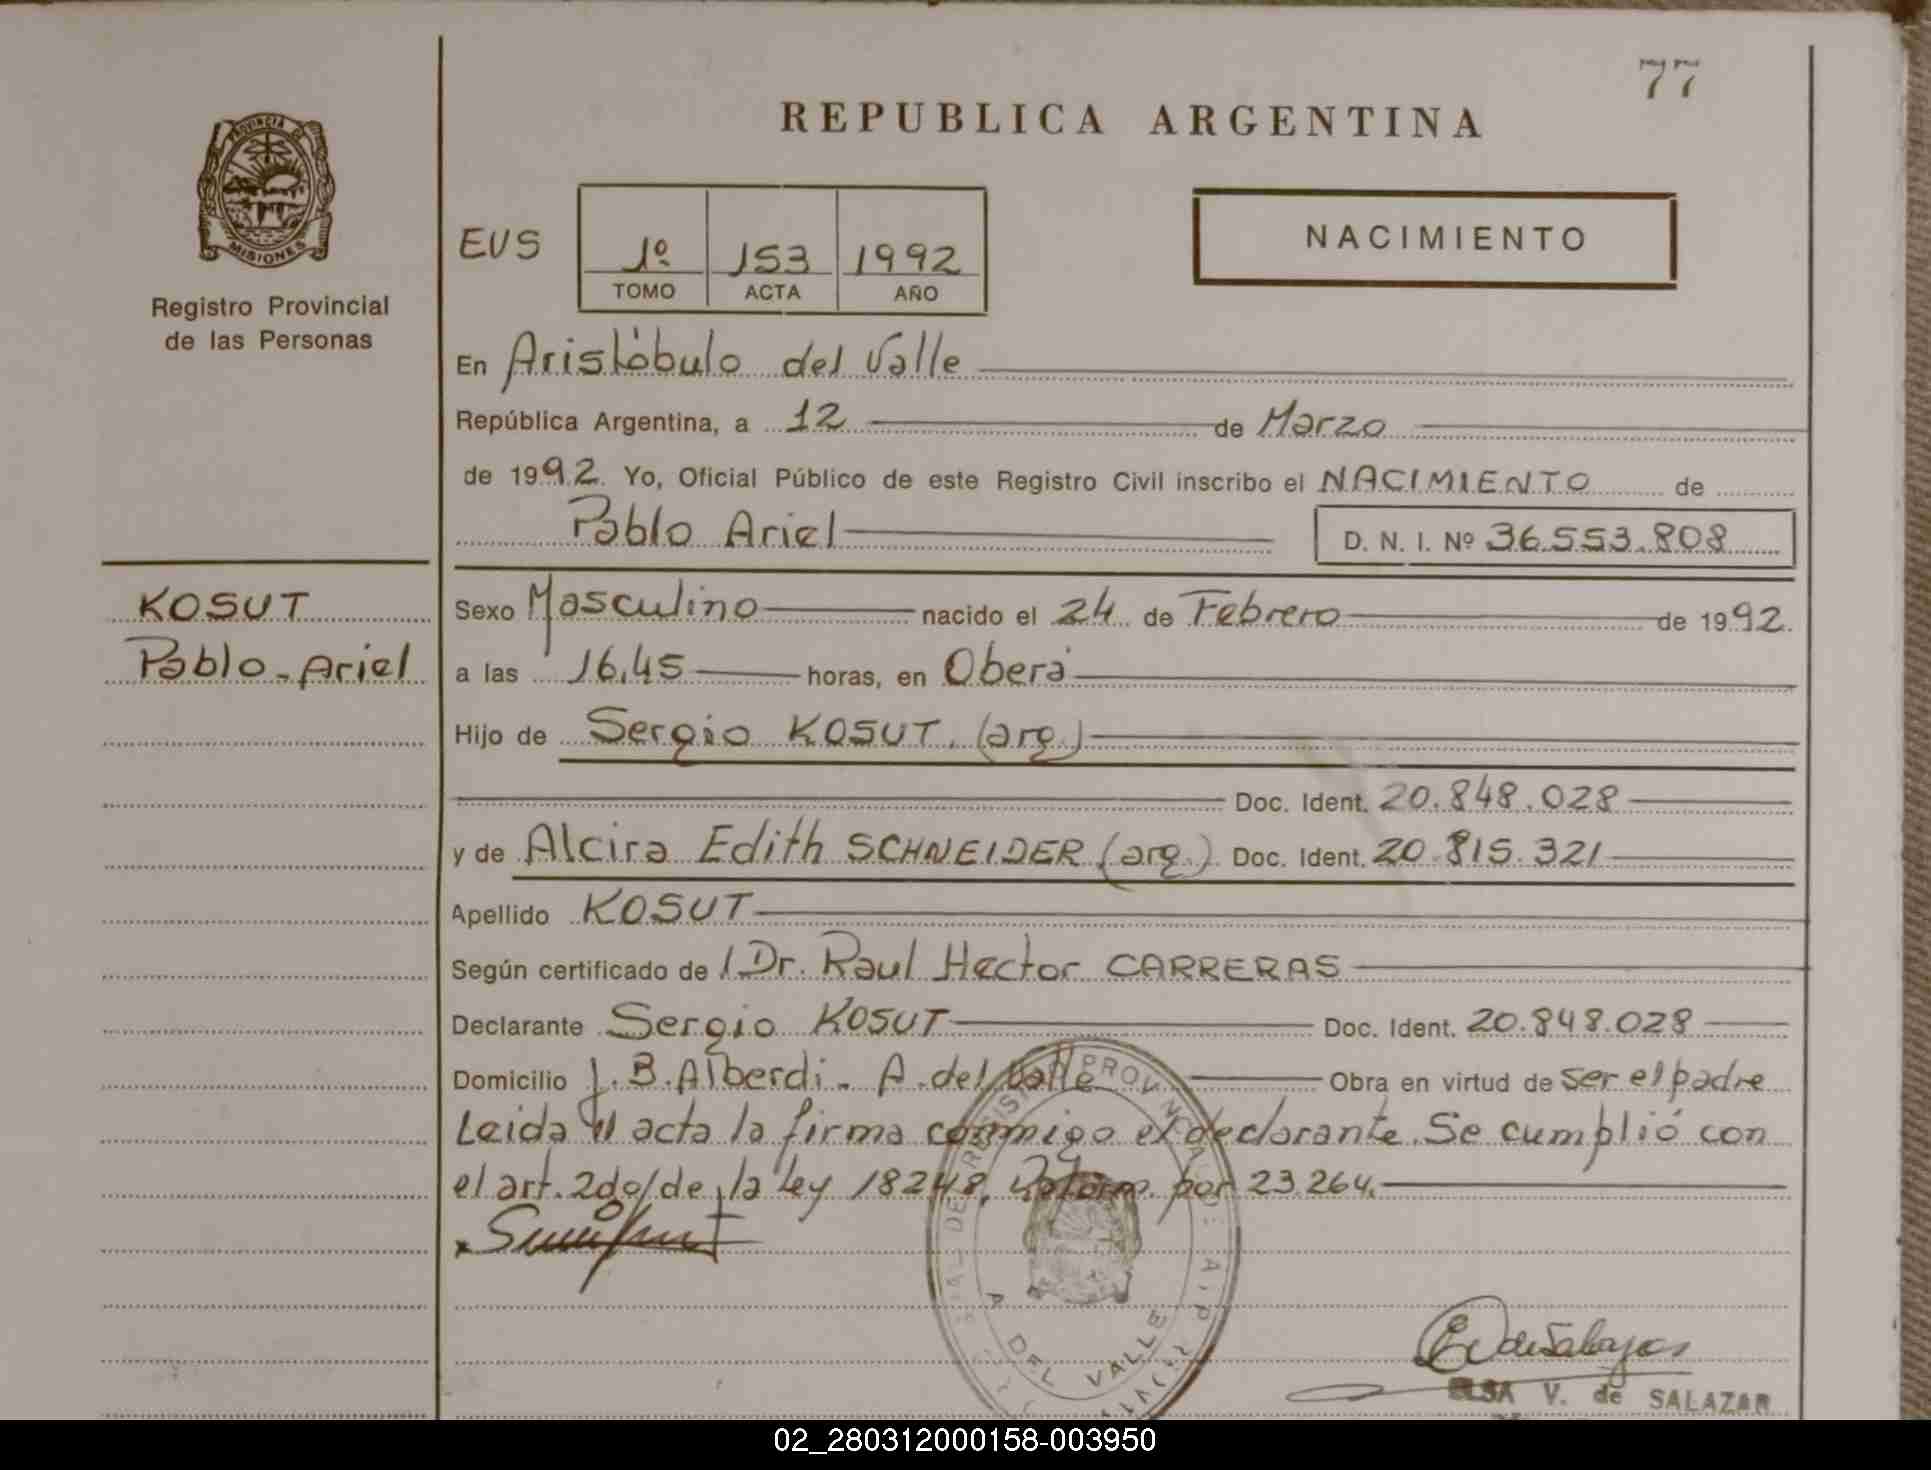 77
REPUBLICA ARGENTINA
PROVINCIA DE
MISIONES
Registro Provincial
de las Personas
EUS
1º 153 1992
TOMO ACTA AÑO
NACIMIENTO
En Aristóbulo del Valle
República Argentina, a 12 de Marzo
de 1992. Yo, Oficial Público de este Registro Civil inscribo el NACIMIENTO de
Pablo Ariel D. N. I. Nº 36.553.808
KOSUT
Pablo-Ariel
Sexo Masculino nacido el 24 de Febrero de 1992.
a las 16.45 horas, en Oberá
Hijo de Sergio KOSUT. (arg.)
Doc. Ident. 20.848.028
y de Alcira Edith SCHNEIDER (arg.) Doc. Ident. 20.815.321
Apellido KOSUT
Según certificado de / Dr. Raul Hector CARRERAS
Declarante Sergio KOSUT Doc. Ident. 20.848.028
Domicilio J.B.Alberdi - A.del Valle Obra en virtud de ser el padre
Leida el acta la firma conmigo el declarante. Se cumplió con
el art. 2do/de la ley 18248, por 23.264.
A DEL VALLE
ELSA V. de SALAZAR
02_280312000158-003950